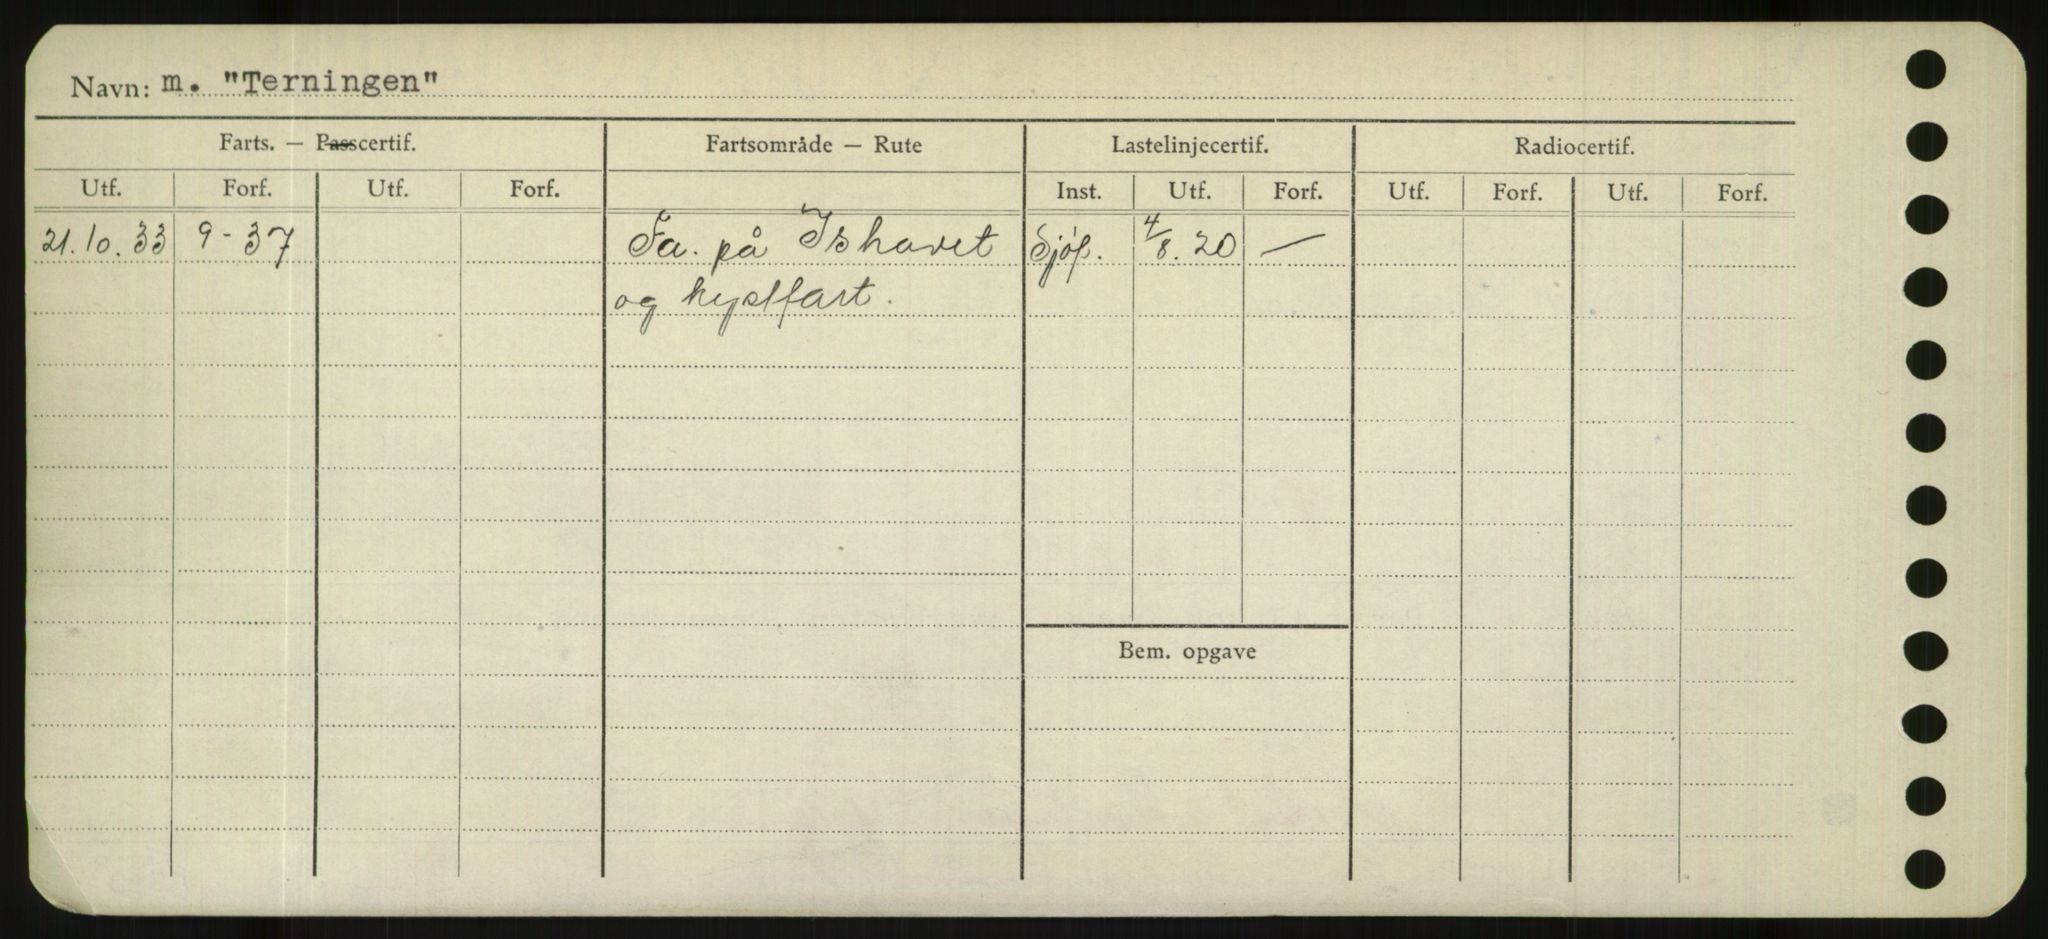 Navn: m. "Terningen"
Farts. — Passcertif. Fartsområde — Rute Lastelinjecertif. Radiocertif.
Utf. Forf. Utf. Forf. Inst. Utf. Forf. Utf. Forf. Utf. Forf.
21.10.33 9-37 Fa. på Ishavet Sjöf. 4/8.20 —
og kystfart.
Bem. opgave